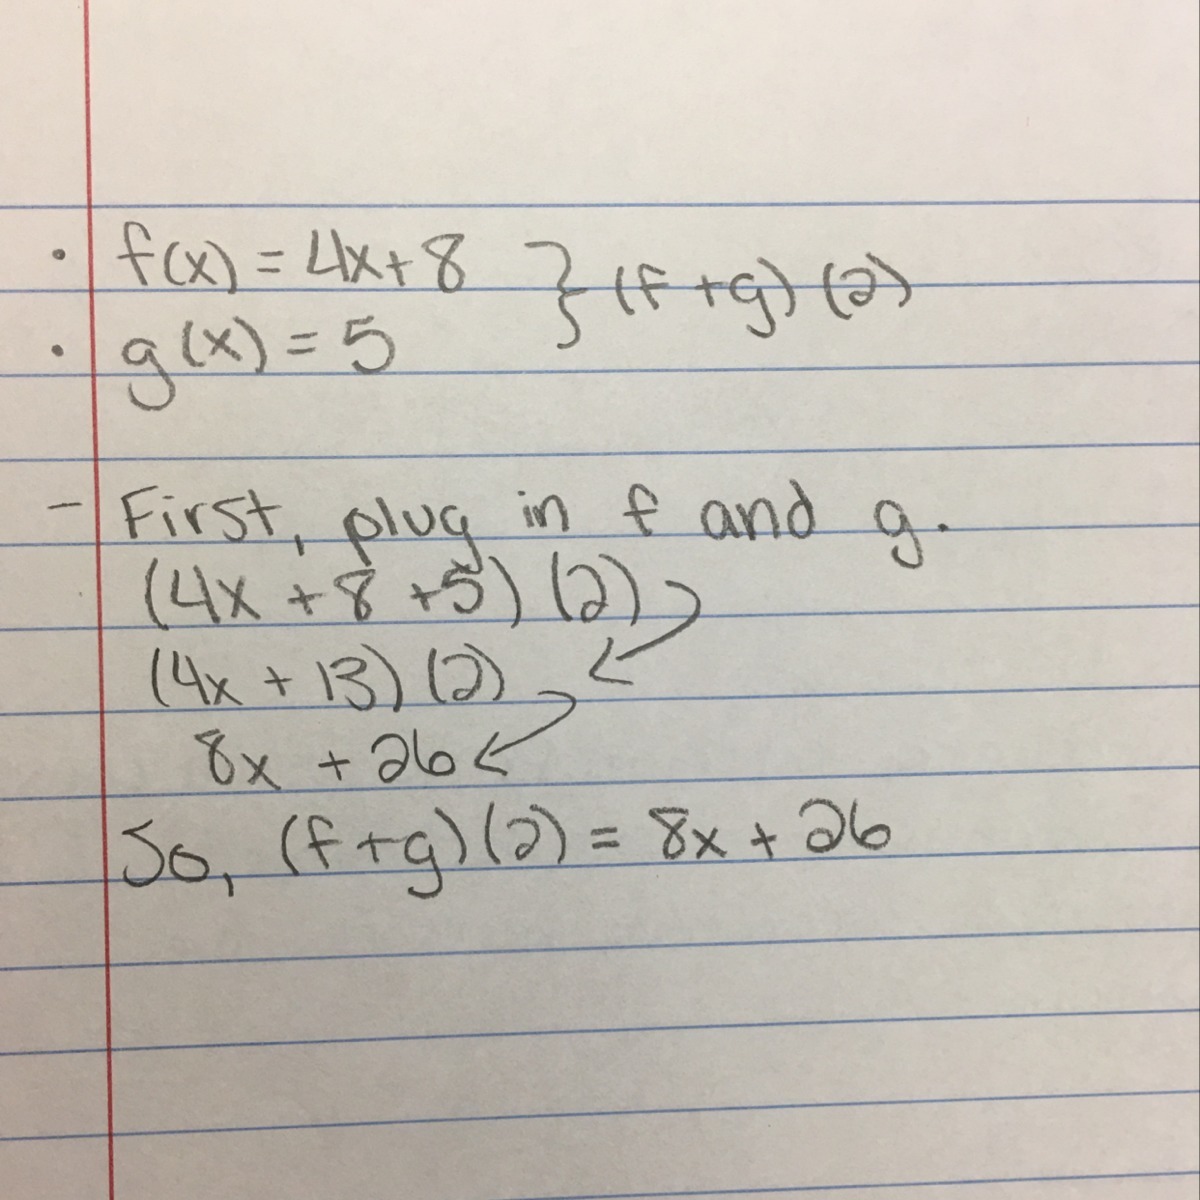 · f(x) = 4x + 8 } (f + g) (2)
· g(x) = 5
- First, plug in f and g.
(4x + 8 + 5) (2)
(4x + 13) (2)
8x + 26
So, (f + g) (2) = 8x + 26